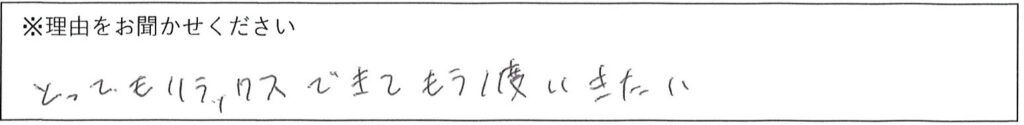 ※理由をお聞かせください
とってもリラックスできてもう1度いきたい